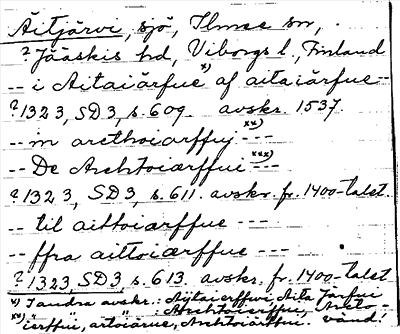 Äitjärvi, sjö, Ilmee sn,
? Jääskis hd, Viborgs l., Finland
-- i Aitaiärfue af aitaiärfue --
? 1323, SD 3, s. 609. avskr. 1537. x)
-- in arethoiarffuj ---
-- De Archtoiærffui --- xx)
? 1323, SD 3, s. 611. avskr. fr. 1400-talet. xxx)
-- til aittoiærffue ---
-- ffra aittoiærffue ---
? 1323, SD 3, s. 613. avskr. fr. 1400-talet
x) I andra avskr.: Äijtaierffwi, Aita Järfue
xx) " " : Archtoierffue, Arkto-
ierffui, artoiärue, Archtoiärffui.